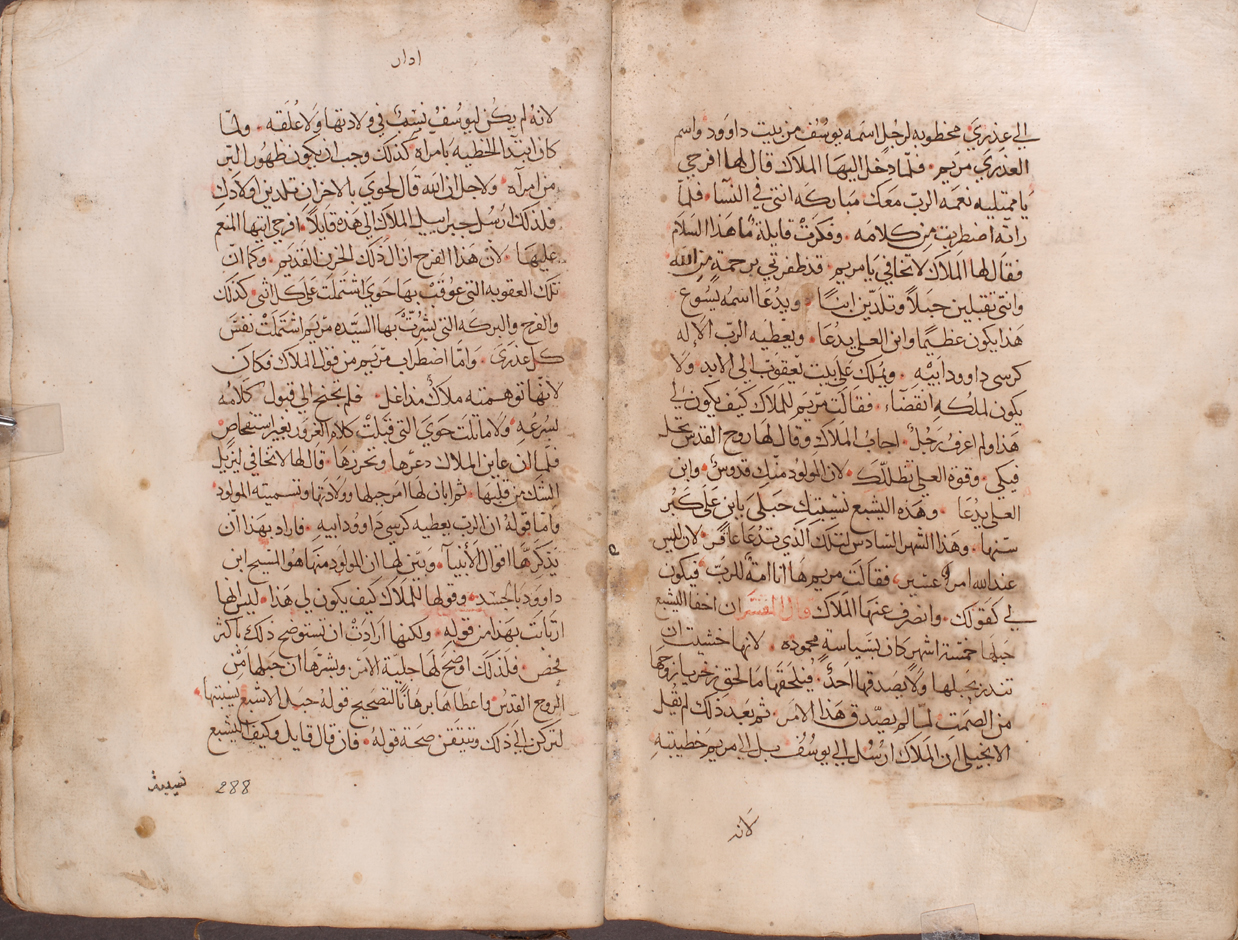 الى عذرى مخطوبه لرجل اسمه يوسف من بيت داوود واسم
العذرى مريم · فلما دخل اليها الملاك قال لها افرحي
يا ممتليه نعمه الرب معك مباركه انتي في النسا · فلما
راته اضطربت من كلامه · وفكرت قايلة ما هذا السلام
فقال لها الملاك لا تخافي يا مريم · قد ظفرتي برحمة من الله
وانتي تقبلين حبلاً وتلدين ابنًا · ويدعا اسمه يسوع
هذا يكون عظيمًا وابن العلي يدعا · ويعطيه الرب الاله
كرسي داوود ابيه · ويملك على بيت يعقوب الى الابد · ولا
يكون لملكه انقضاء · فقالت مريم للملاك كيف يكون لي
هذا ولم اعرف رجل · اجاب الملاك وقال لها روح القدس تحل
فيكي · وقوة العلي تظللك · لان المولود منك قدوس · وابن
العلي يدعا · وهذه اليشبع نسيبتك حبلى بابن على كبر
سنها · وهذا الشهر السادس لتلك الذي تدعا عاقر · لان ليس
عند الله امر عسير · فقالت مريم ها انا امة للرب · فيكون
لي كقولك · وانصرف عنها الملاك قال المفسر ان اخفا اليشبع
حبلها خمسة اشهر كان بسياسة محموده · لانها خشيت ان
تنذر بحبلها ولا يصدقها احد · فيلحقها ما لحق زخريا زوجها
من الصمت لما لم يصدق هذا الامر · ثم بعد ذلك لم يقل
الانجيلي ان الملاك ارسل الى يوسف بل الى مريم خطيبته
لانه
لانه لم يكن ليوسف نسب في ولادتها ولا علقه · ولما
كان ابتدا الخطيه بامراه كذلك وجب ان يكون ظهور البر
من امراه · ولاجل ان الله قال لحوى بالاحزان تلدين اولادك
فلذلك ارسل جبراييل الملاك الى هذه قايلاً · افرحي ايتها المنعم
عليها · لان هذا الفرح ازال ذلك الحزن القديم · وكما ان
تلك العقوبه التي عوقب بها حوى اشتملت على كل انثى · كذلك
والفرح والبركه التي بشرت بها السيده مريم اشتملت نفس
كل عذرى · واما اضطراب مريم من قول الملاك فكان
لانها توهمته ملاك مداغل · فلم تجنح الى قبول كلامه
بسرعه · ولا ماثلت حوى التي قبلت كلام الغرور بغير استفحاص
فلما ان عاين الملاك دعرها وتحرزها · قال لها لا تخافي ليزيل
الشك من قلبها · ثم ابان لها امر حبلها وولادتها وتسميته المولود
واما قوله ان الرب يعطيه كرسي داوود ابيه · فاراد بهذا ان
يذكرها اقوال الانبيا · ويبين لها ان المولود منها هو المسيح ابن
داوود بالجسد · وقولها للملاك كيف يكون لي هذا · ليس انها
ارتابت بهذا من قوله · ولكنها ارادت ان تستوضح ذلك باكثر
فحص · فلذلك اوضح لها جلية الامر · وبشرها ان حبلها من
الروح القدس واعطاها برهانًا لتصحيح قوله حبل لاشبع نسيبتها
لتركن الى ذلك وتتيقن صحة قوله · فان قال قايل وكيف اليشبع
288
نسيبة